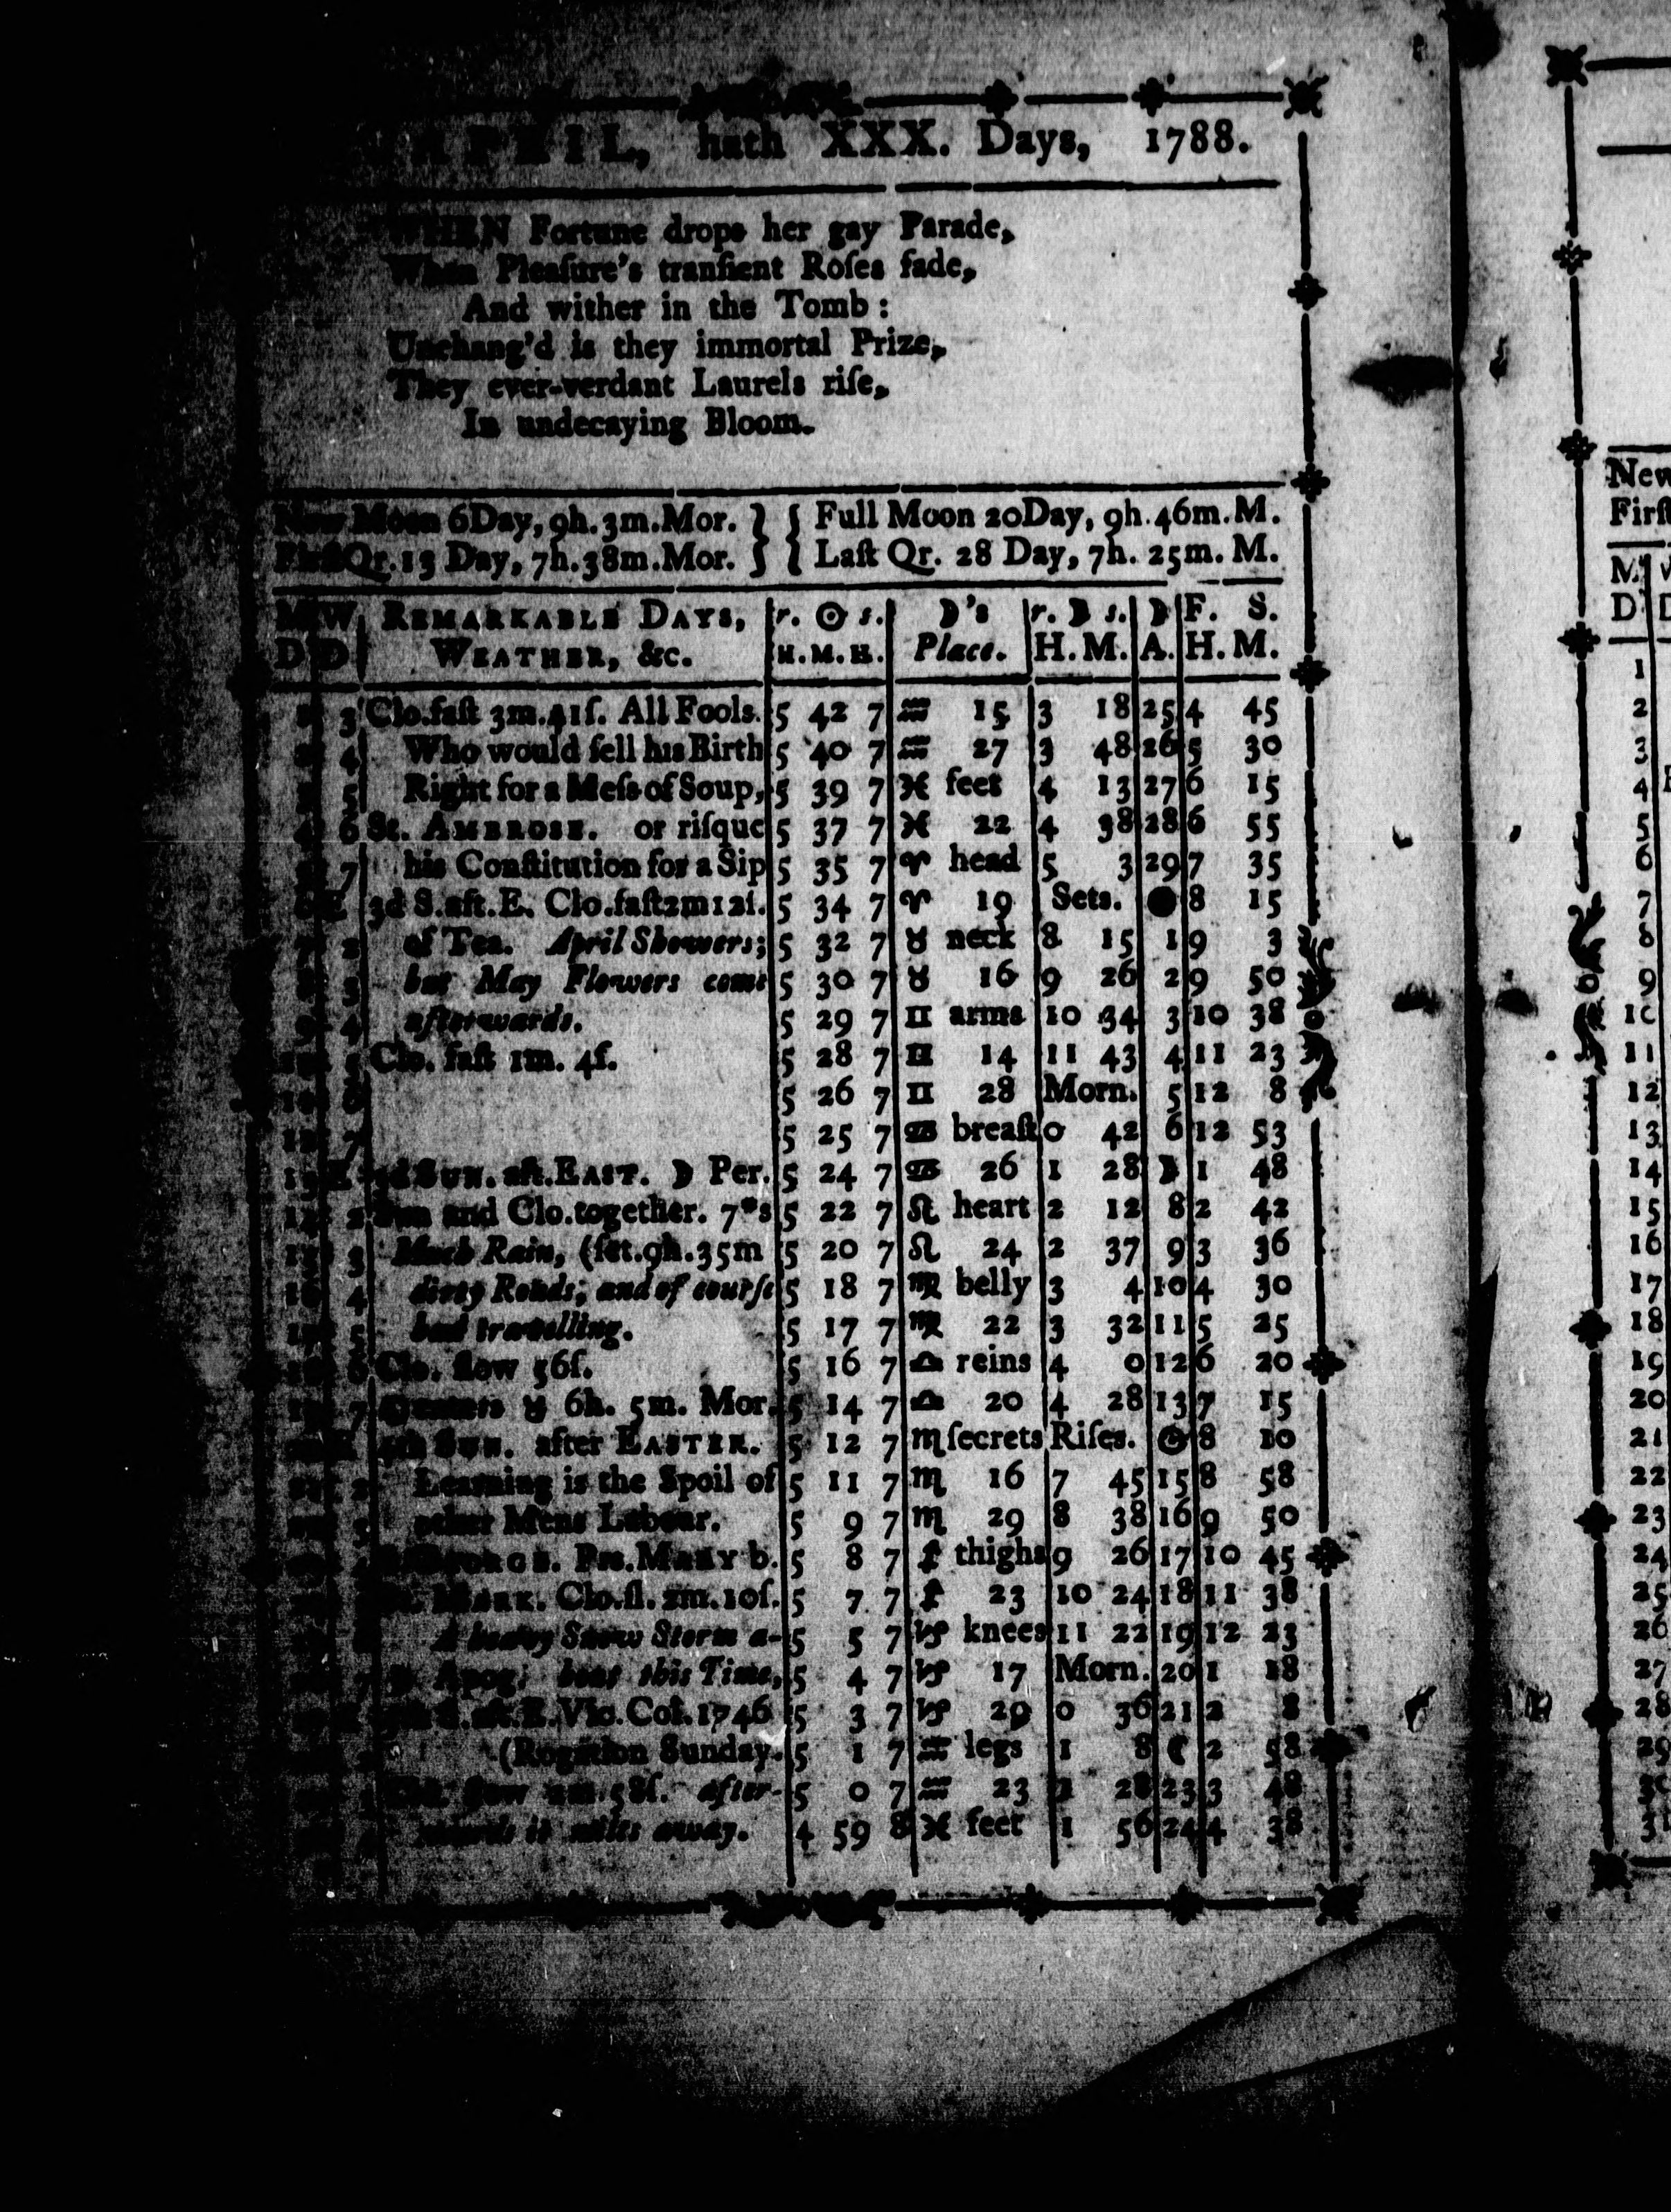 APRIL, hath XXX. Days, 1788.
WHEN Fortune drops her gay Parade,
When Pleaſure's tranſient Roſes fade,
And wither in the Tomb :
Unchang'd is they immortal Prize,
They ever-verdant Laurels riſe,
In undecaying Bloom.
New Moon 6Day, 9h. 3m. Mor. } { Full Moon 20Day, 9h. 46m. M.
FirſtQr. 13 Day, 7h. 38m. Mor. } { Laſt Qr. 28 Day, 7h. 25m. M.
M W REMARKABLE DAYS, r. ☉ s. ☽'s r. ☽ s. ☽ F. S.
D D WEATHER, &c. H. M. H. Place. H. M. A. H. M.
3 Clo.faſt 3m.41ſ. All Fools. 5 42 7 ♒ 15 3 18 25 4 45
4 Who would ſell his Birth 5 40 7 ♒ 27 3 48 26 5 30
5 Right for a Meſs of Soup, 5 39 7 ♓ feet 4 13 27 6 15
4 6 St. AMBROSE. or riſque 5 37 7 ♓ 22 4 38 28 6 55
7 his Conſtitution for a Sip 5 35 7 ♈ head 5 3 29 7 35
6 E 3d S.aft.E. Clo.faſt2m12ſ. 5 34 7 ♈ 19 Sets. ● 8 15
7 2 of Tea. April Showers; 5 32 7 ♉ neck 8 15 1 9 3
8 3 but May Flowers come 5 30 7 ♉ 16 9 26 2 9 50
9 4 afterwards. 5 29 7 ♊ arms 10 34 3 10 38
5 Clo. faſt 1m. 4ſ. 5 28 7 ♊ 14 11 43 4 11 23
6 5 26 7 ♊ 28 Morn. 5 12 8
7 5 25 7 ♋ breaſt 0 42 6 12 53
13 E SUN. aft.EAST. ☽ Per. 5 24 7 ♋ 26 1 28 ☽ 1 48
2 Sun and Clo.together. 7*s 5 22 7 ♌ heart 2 12 8 2 42
3 Much Rain, (ſet.9h.35m 5 20 7 ♌ 24 2 37 9 3 36
4 dirty Roads; and of courſe 5 18 7 ♍ belly 3 4 10 4 30
5 bad travelling. 5 17 7 ♍ 22 3 32 11 5 25
6 Clo. ſlow 56ſ. 5 16 7 ♎ reins 4 0 12 6 20
7 ☉enters ♉ 6h. 5m. Mor. 5 14 7 ♎ 20 4 28 13 7 15
4th SUN. after EASTER. 5 12 7 ♏ ſecrets Riſes. ☉ 8 10
2 Learning is the Spoil of 5 11 7 ♏ 16 7 45 15 8 58
3 other Mens Labour. 5 9 7 ♏ 29 8 38 16 9 50
4 GEORGE. Prs.MARY b. 5 8 7 ♐ thighs 9 26 17 10 45
MARK. Clo.ſl. 2m.10ſ. 5 7 7 ♐ 23 10 24 18 11 38
A heavy Snow Storm a- 5 5 7 ♑ knees 11 22 19 12 23
7 ☽ Apog. bout this Time, 5 4 7 ♑ 17 Morn. 20 1 18
S. aft.E.Vic.Col.1746 5 3 7 ♑ 29 0 36 21 2 8
(Rogation Sunday. 5 1 7 ♒ legs 1 8 ☾ 2 58
Clo. ſlow 2m.58ſ. after- 5 0 7 ♒ 23 1 28 23 3 48
wards it melts away. 4 59 8 ♓ feet 1 56 24 4 38
New
Firſt
M
D D
1
2
3
4
5
6
7
8
9
10
11
12
13
14
15
16
17
18
19
20
21
22
23
24
25
26
27
28
29
30
31